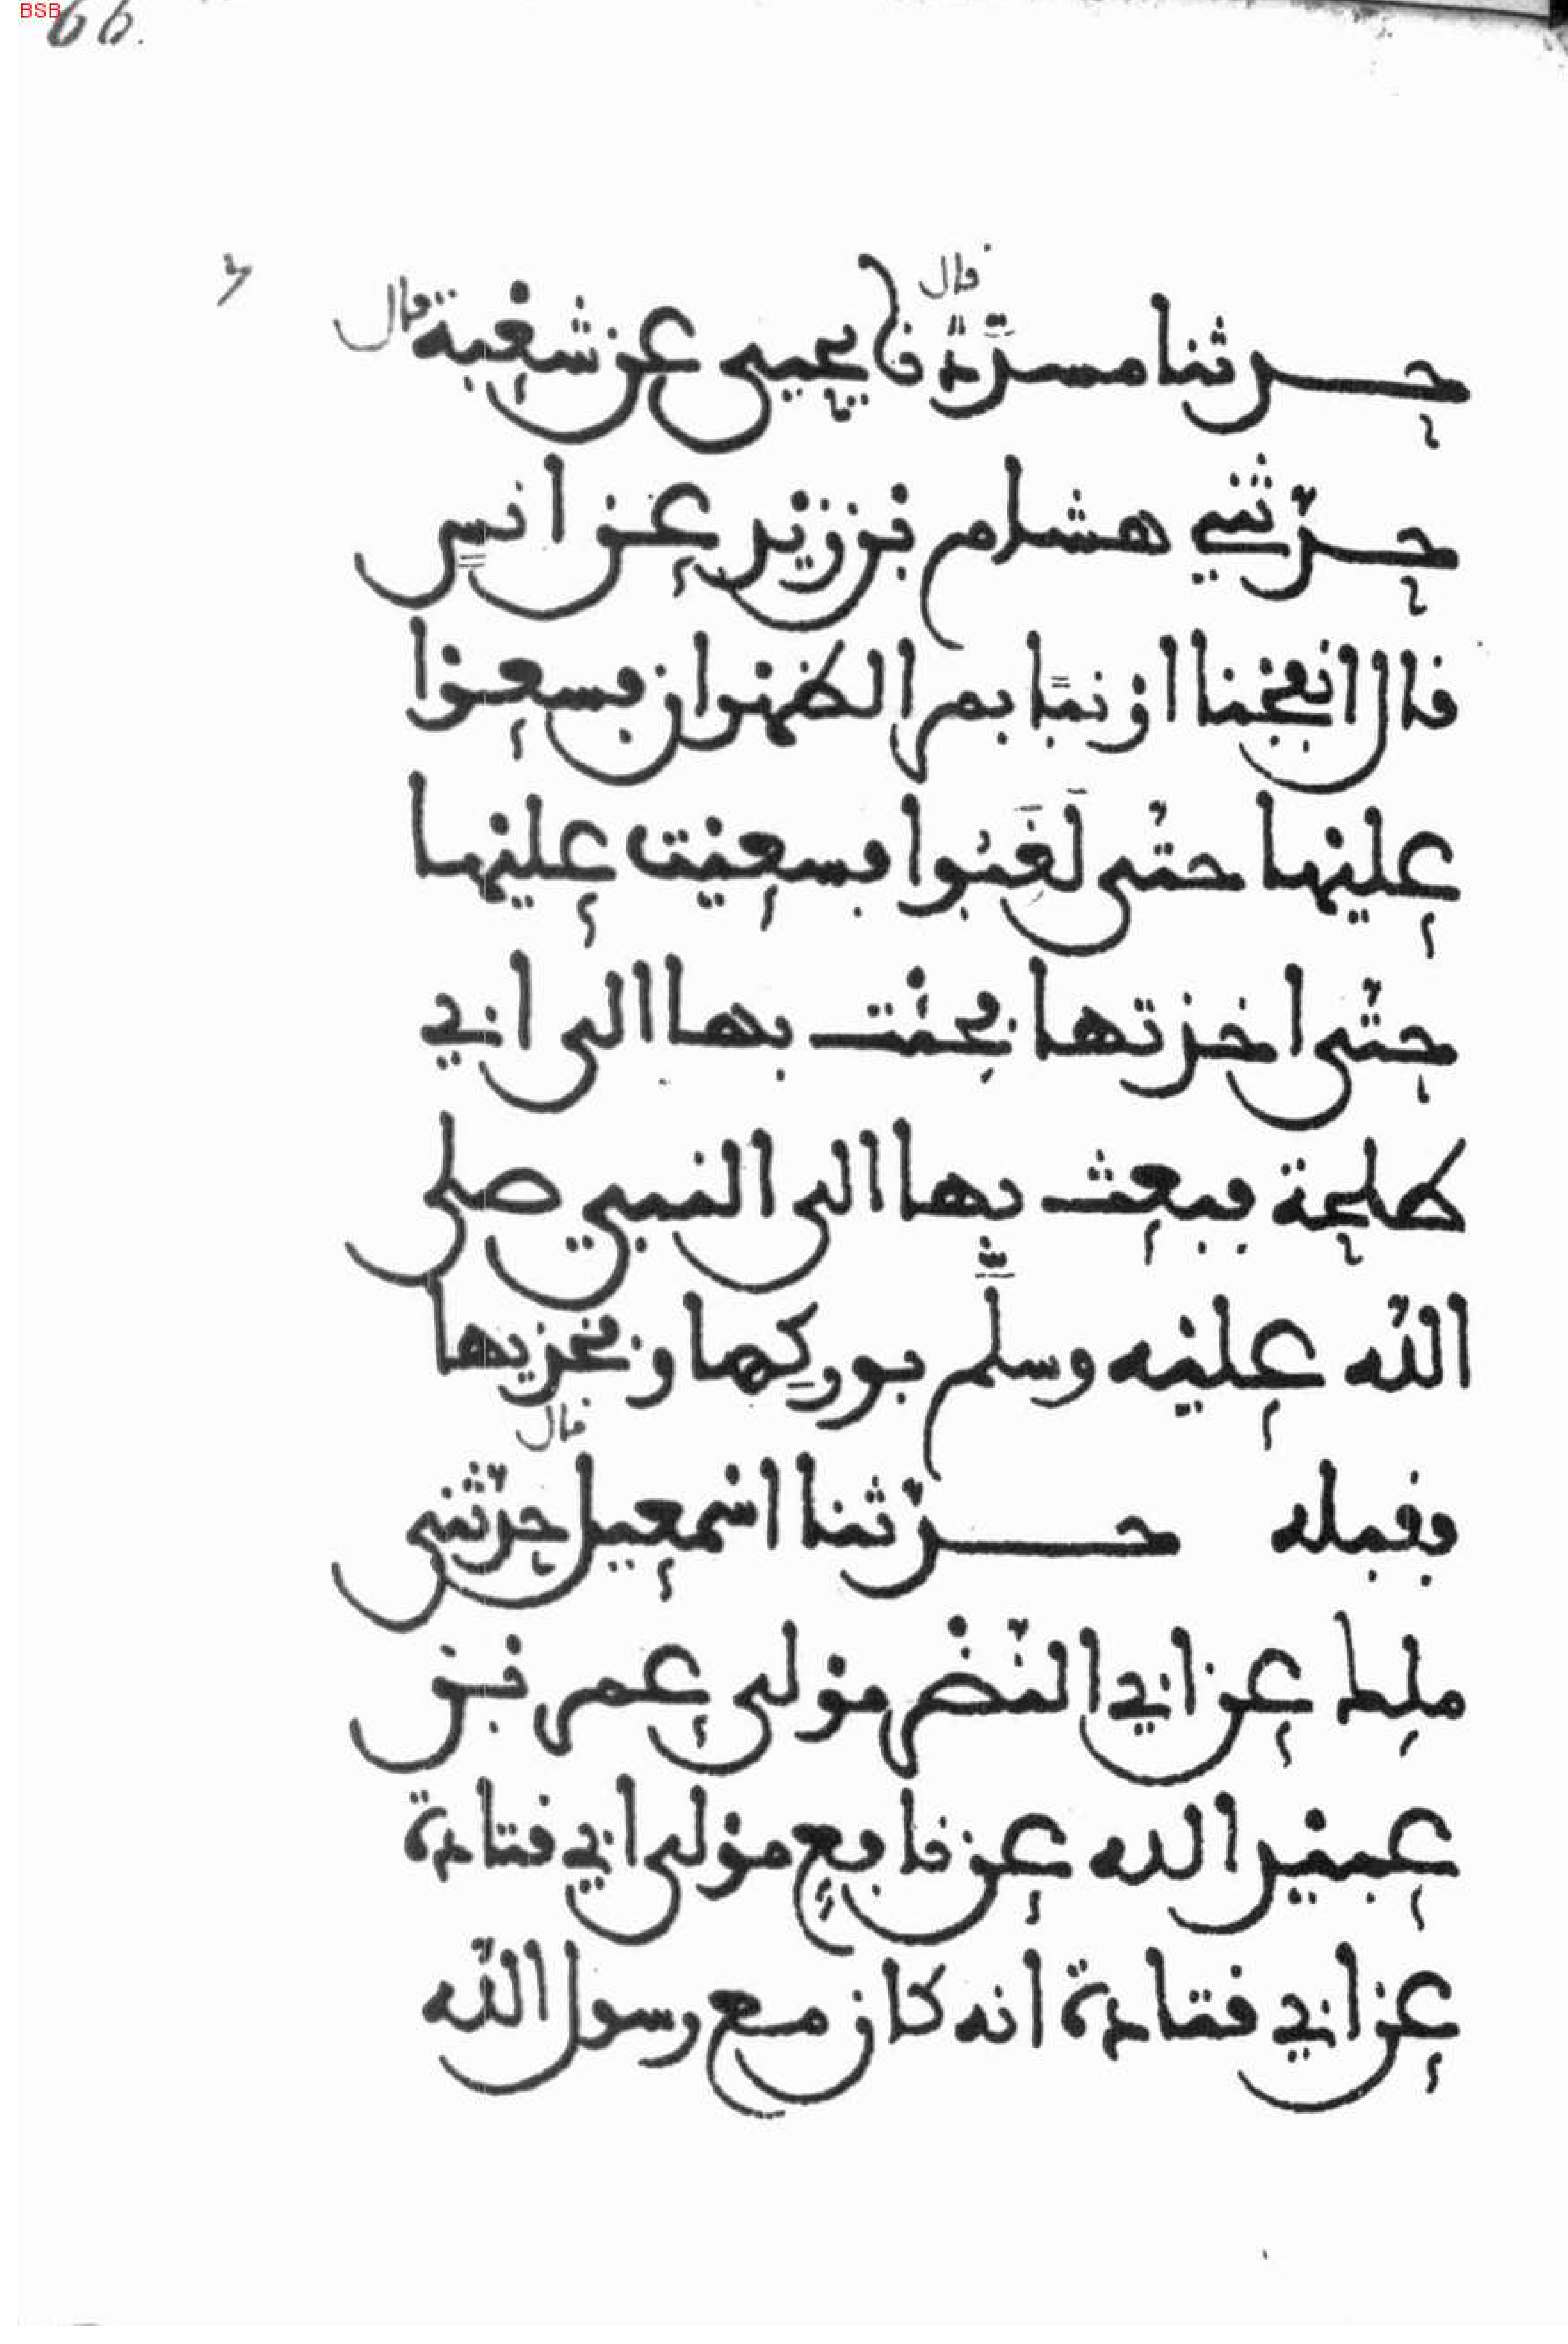 BSB
66.
قال
حدثنا مسدّدٌ نا يحيى عن شعْبة قال
حدّثني هشام بن زيْد عن انسٍ
قال انفجنا ارْنبًا بمر الظهْران فسعوْا
عليْها حتّى لَغَبُوا فسعيْت عليْها
حتّى اخذتها فجئْت بها الى ابي
طلحة فبعث بها الى النبي صلى
الله عليْه وسلَّم بوركها وفخذيها
قال
فقبله حدّثنا اسْمعيل حدّثني
ملك عن ابي النّضْر موْلى عمر بْن
عبيْد الله عن نافعٍ موْلى ابي قتادة
عن ابي قتادة انه كان مع رسول الله